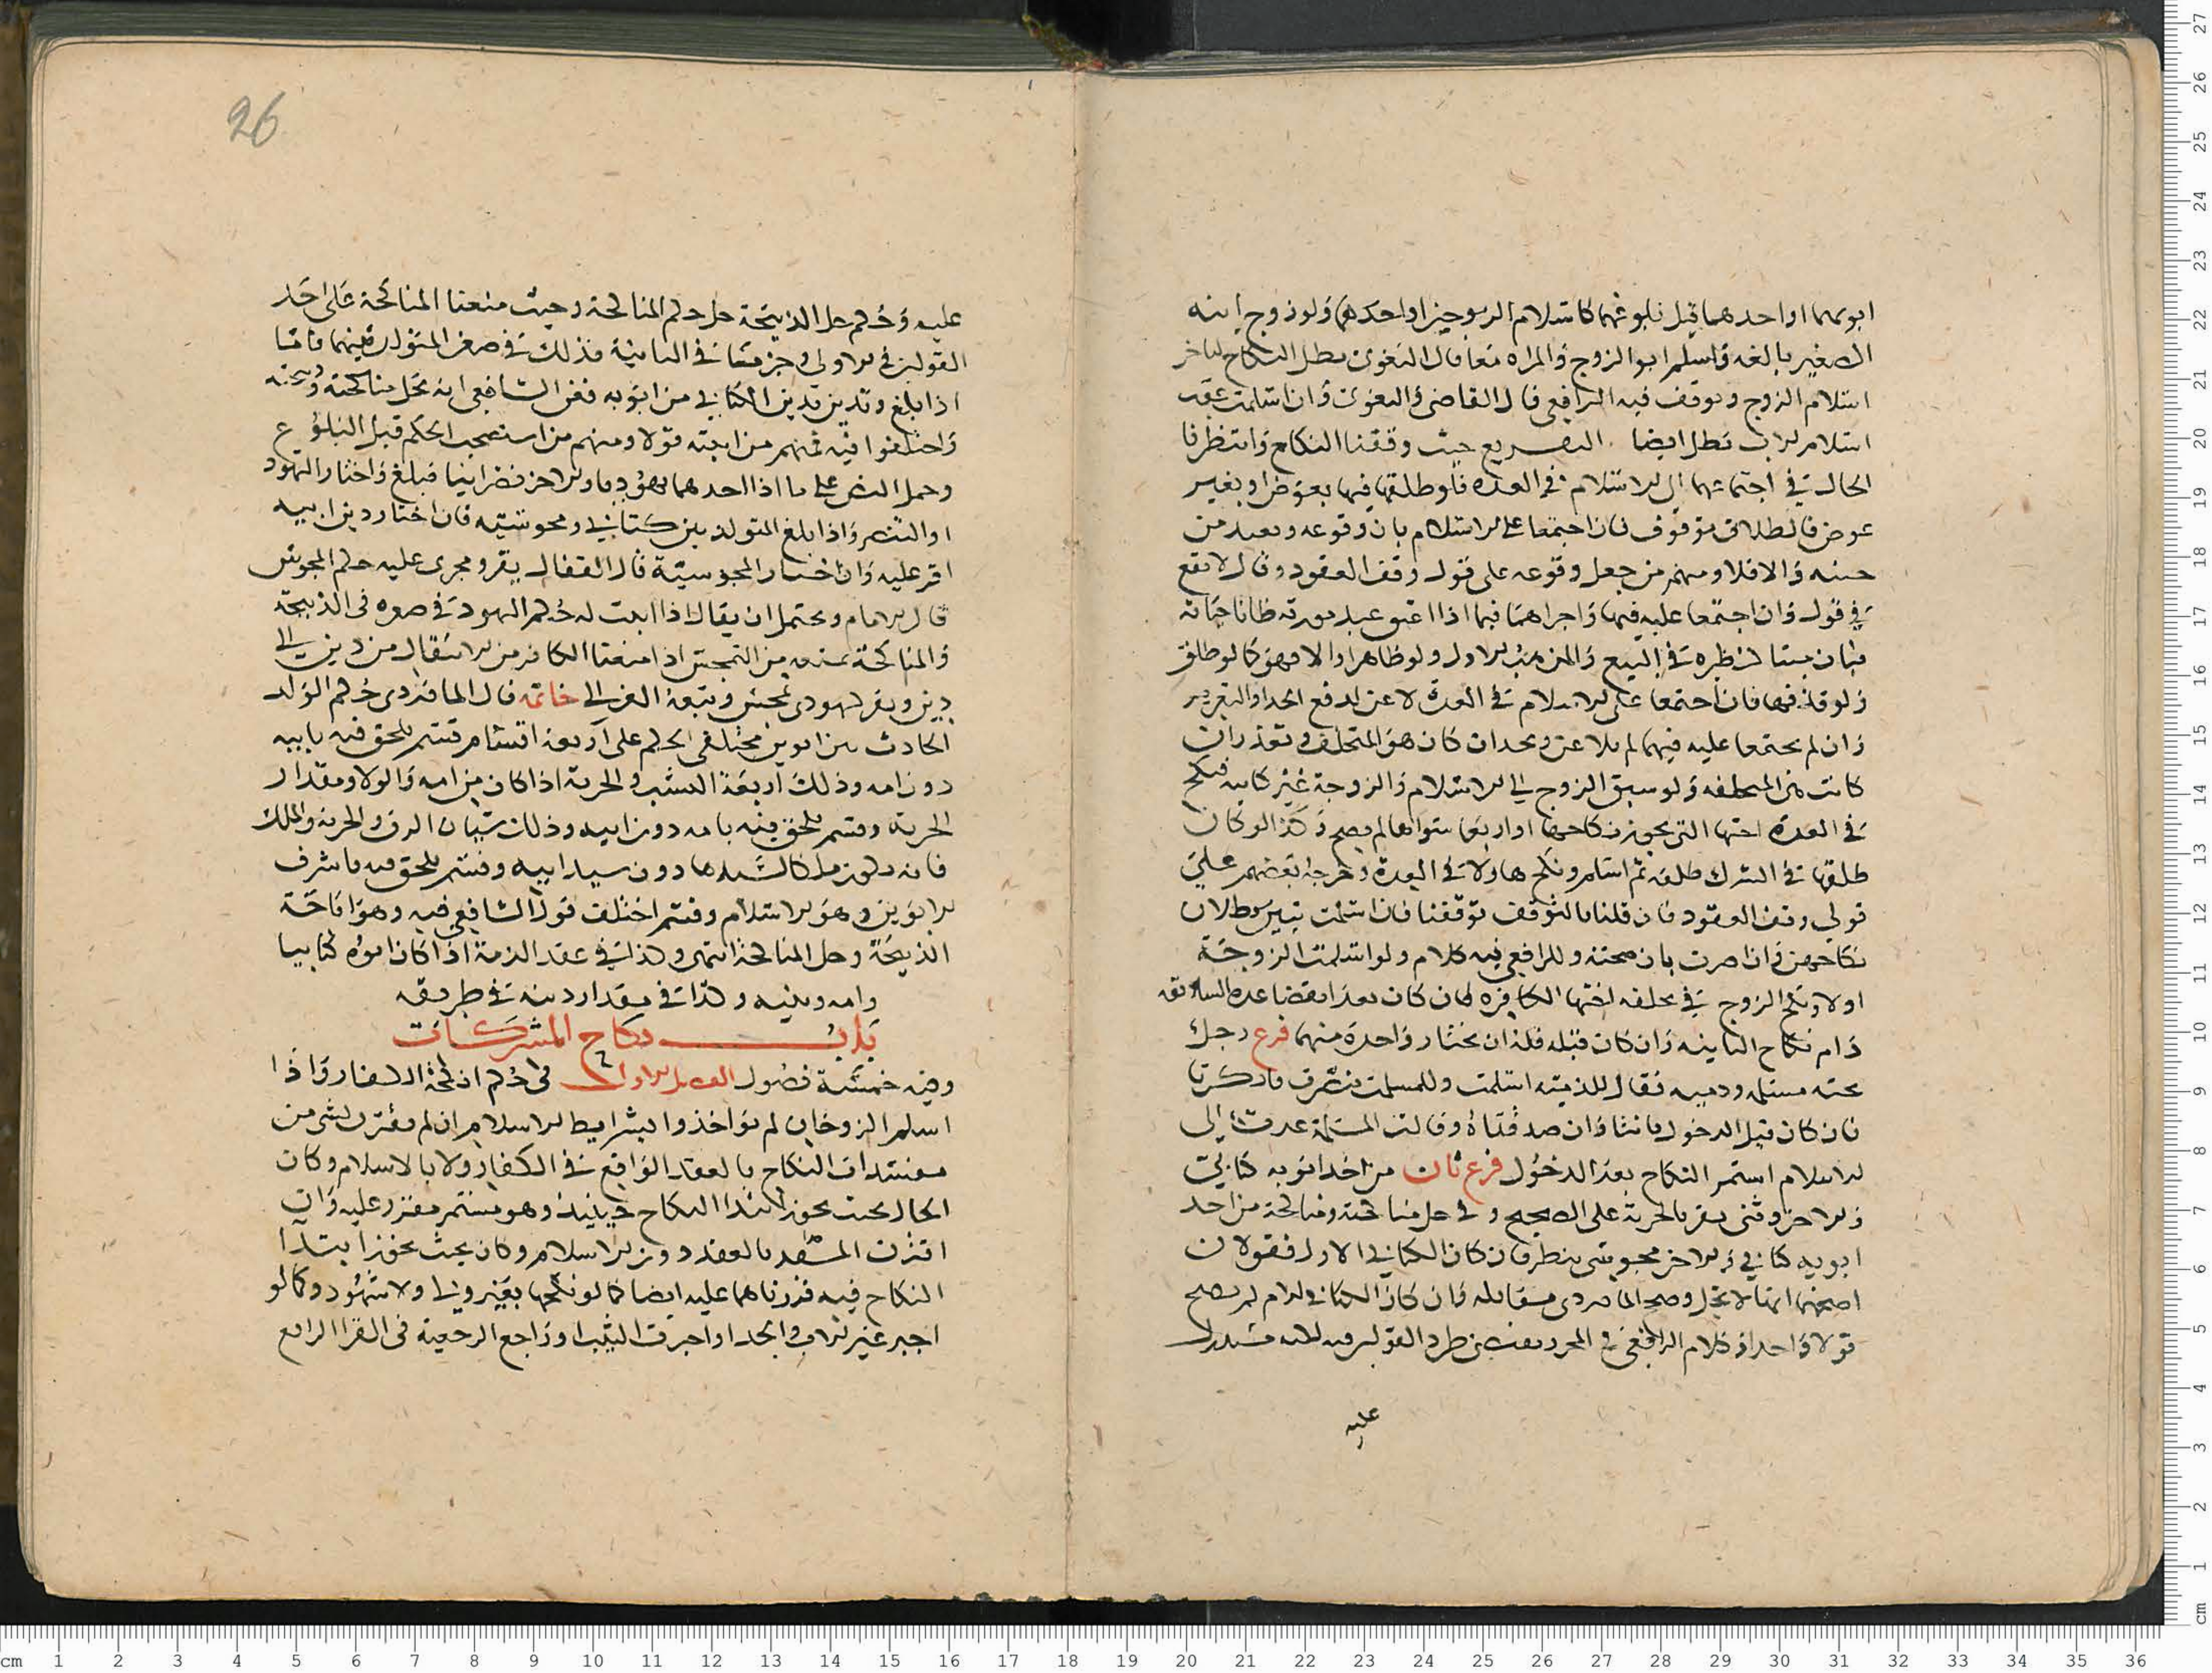 ابويهما او احدهما قبل بلوغهما كاسلام الزوجين او احدهما ولو زوج ابنه
الصغير بالغه فاسلم ابو الزوج والمراه معا قال البغوى بطل النكاح لتاخر
اسلام الزوج وتوقف فيه الرافعى قال القاضى والبغوى وان اسلمت عقب
اسلام الاب بطل ايضا التفريع حيث وقفنا النكاح وانتظرنا
الحال فى اجتماعهما الى الاسلام فى العدة فلو طلقها فيها بعوض او بغير
عوض فالطلاق موقوف فان اجتمعا على الاسلام بان وقوعه وتعتد من
حينه والا فلا ومنهم من جعل وقوعه على قول وقف العقود وقال لا يقع
فى قول وان اجتمعا عليه فيها واجراهما فيما اذا اعتق عبد مورثه ظانا حياته
فبان ميتا لنظيره فى البيع والمذهب الاول ولو ظاهر او الا فهو كالو طلق
ولو قذفها فان اجتمعا على الاسلام فى العدة لاعن لدفع الحد او التعزير
وان لم يجتمعا عليه فيها لم يلاعن ويحد ان كان هو المتخلف ويعزر ان
كانت هى المتخلفه ولو سبق الزوج الى الاسلام والزوجة غير كتابيه فنكح
فى العدة اختها التى يجوز نكاحها او اربعا سواها لم يصح وكذا لو كان
طلقها فى الشرك طلقه ثم اسلم ونكحها ولا فى العدة وخرجه بعضهم على
قولى وقف العقود فان قلنا بالتوقف توقفنا فان اسلمت تبين بطلان
نكاحهن وان اصرت بان صحته وللرافعى فيه كلام ولو اسلمت الزوجة
اولا ونكح الزوج فى تخلفه اختها الكافره فان كان بعد انقضا عدة السابقه
دام نكاح الثانيه وان كان قبله فله ان يختار واحدة منهما فرع رجل
تحته مسلمه وذميه فقال للذميه اسلمت وللمسلمة
فان كان قبل الدخول بانتا وان صدقتاه وقالت المسلمة عدت الى
الاسلام استمر النكاح بعد الدخول فرع ثان من احد ابويه كتابى
والاخر وثنى يقر بالجزية على الصحيح وفى حل مناكحته ومناكحة من احد
ابويه كتابى والاخر مجوسى ينظر فان كان الكتابى الاول فقولان
اصحهما انها لا تحل وصحح الماوردى مقابله وان كان الكتابى الام لم يصح
قولا واحدا وكلام الرافعى فى المحرر يقتضى طرد القولين فيه
عليه
26
عليه وحكم حل الذبيحة حل حكم المناكحة وحيث منعنا المناكحة على احد
القولين فى الاولى وجزمنا فى الثانية فذلك فى صغر المتولد بينهما فاما
اذا بلغ وتدين بدين الكتابى من ابويه فعن الشافعى انه تحل مناكحته وذبيحته
واختلفوا فيه فمنهم من اثبته قولا ومنهم من استصحب الحكم قبل البلوغ
وحمل النص على ما اذا احدهما يهوديا والاخر نصرانيا فبلغ واختار التهود
او التنصر واذا بلغ المتولد بين كتابى ومجوسيه فان اختار دين ابيه
اقر عليه وان اختار المجوسية قال القفال يقر ويجرى عليه حكم المجوس
قال الامام ويحتمل ان يقال اذا اثبت له حكم اليهود فى صغره فى الذبيحة
والمناكحة يمنعه من التمجس اذا منعنا الكافر من الانتقال من دين الى
دين خاتمة قال الماوردى حكم الولد
الحادث من ابوين مختلفى الحكم على اربعة اقسام قسم يلحق فيه بابيه
دون امه وذلك اربعة النسب والحرية اذا كان من امه والولا ومقدار
الجزية وقسم يلحق فيه بامه دون ابيه وذلك شيان الرق والحرية والملك
فانه يكون ملكا لسيدها دون سيد ابيه وقسم يلحق فيه باشرف
الابوين وهو الاسلام وقسم اختلف قول الشافعى فيه وهو اباحة
الذبيحة وحل المناكحة انتهى وكذا فى عقد الذمة اذا كان ابوه كتابيا
وامه وثنيه وكذا فى مقدار ديته فى طريقه
باب نكاح المشركات
وفيه خمسة فصول الفصل الاول فى حكم انكحة الكفار واذا
اسلم الزوجان لم يواخذوا بشرايط الاسلام ان لم يقترن شى من
مفسدات النكاح بالعقد الواقع فى الكفار ولا بالاسلام وكان
الحال بحيث يجوز ابتدا النكاح حينيذ وهو مستمر مقرر عليه وان
اقترن المفسد بالعقد دون الاسلام وكان بحيث يجوز ابتدا
النكاح فيه قررناهما عليه ايضا كما لو نكحها بغير ولى ولا شهود وكما لو
اجبر غير الاب والجد او اجبرت الثيب او راجع الرجعية فى القرا الرابع